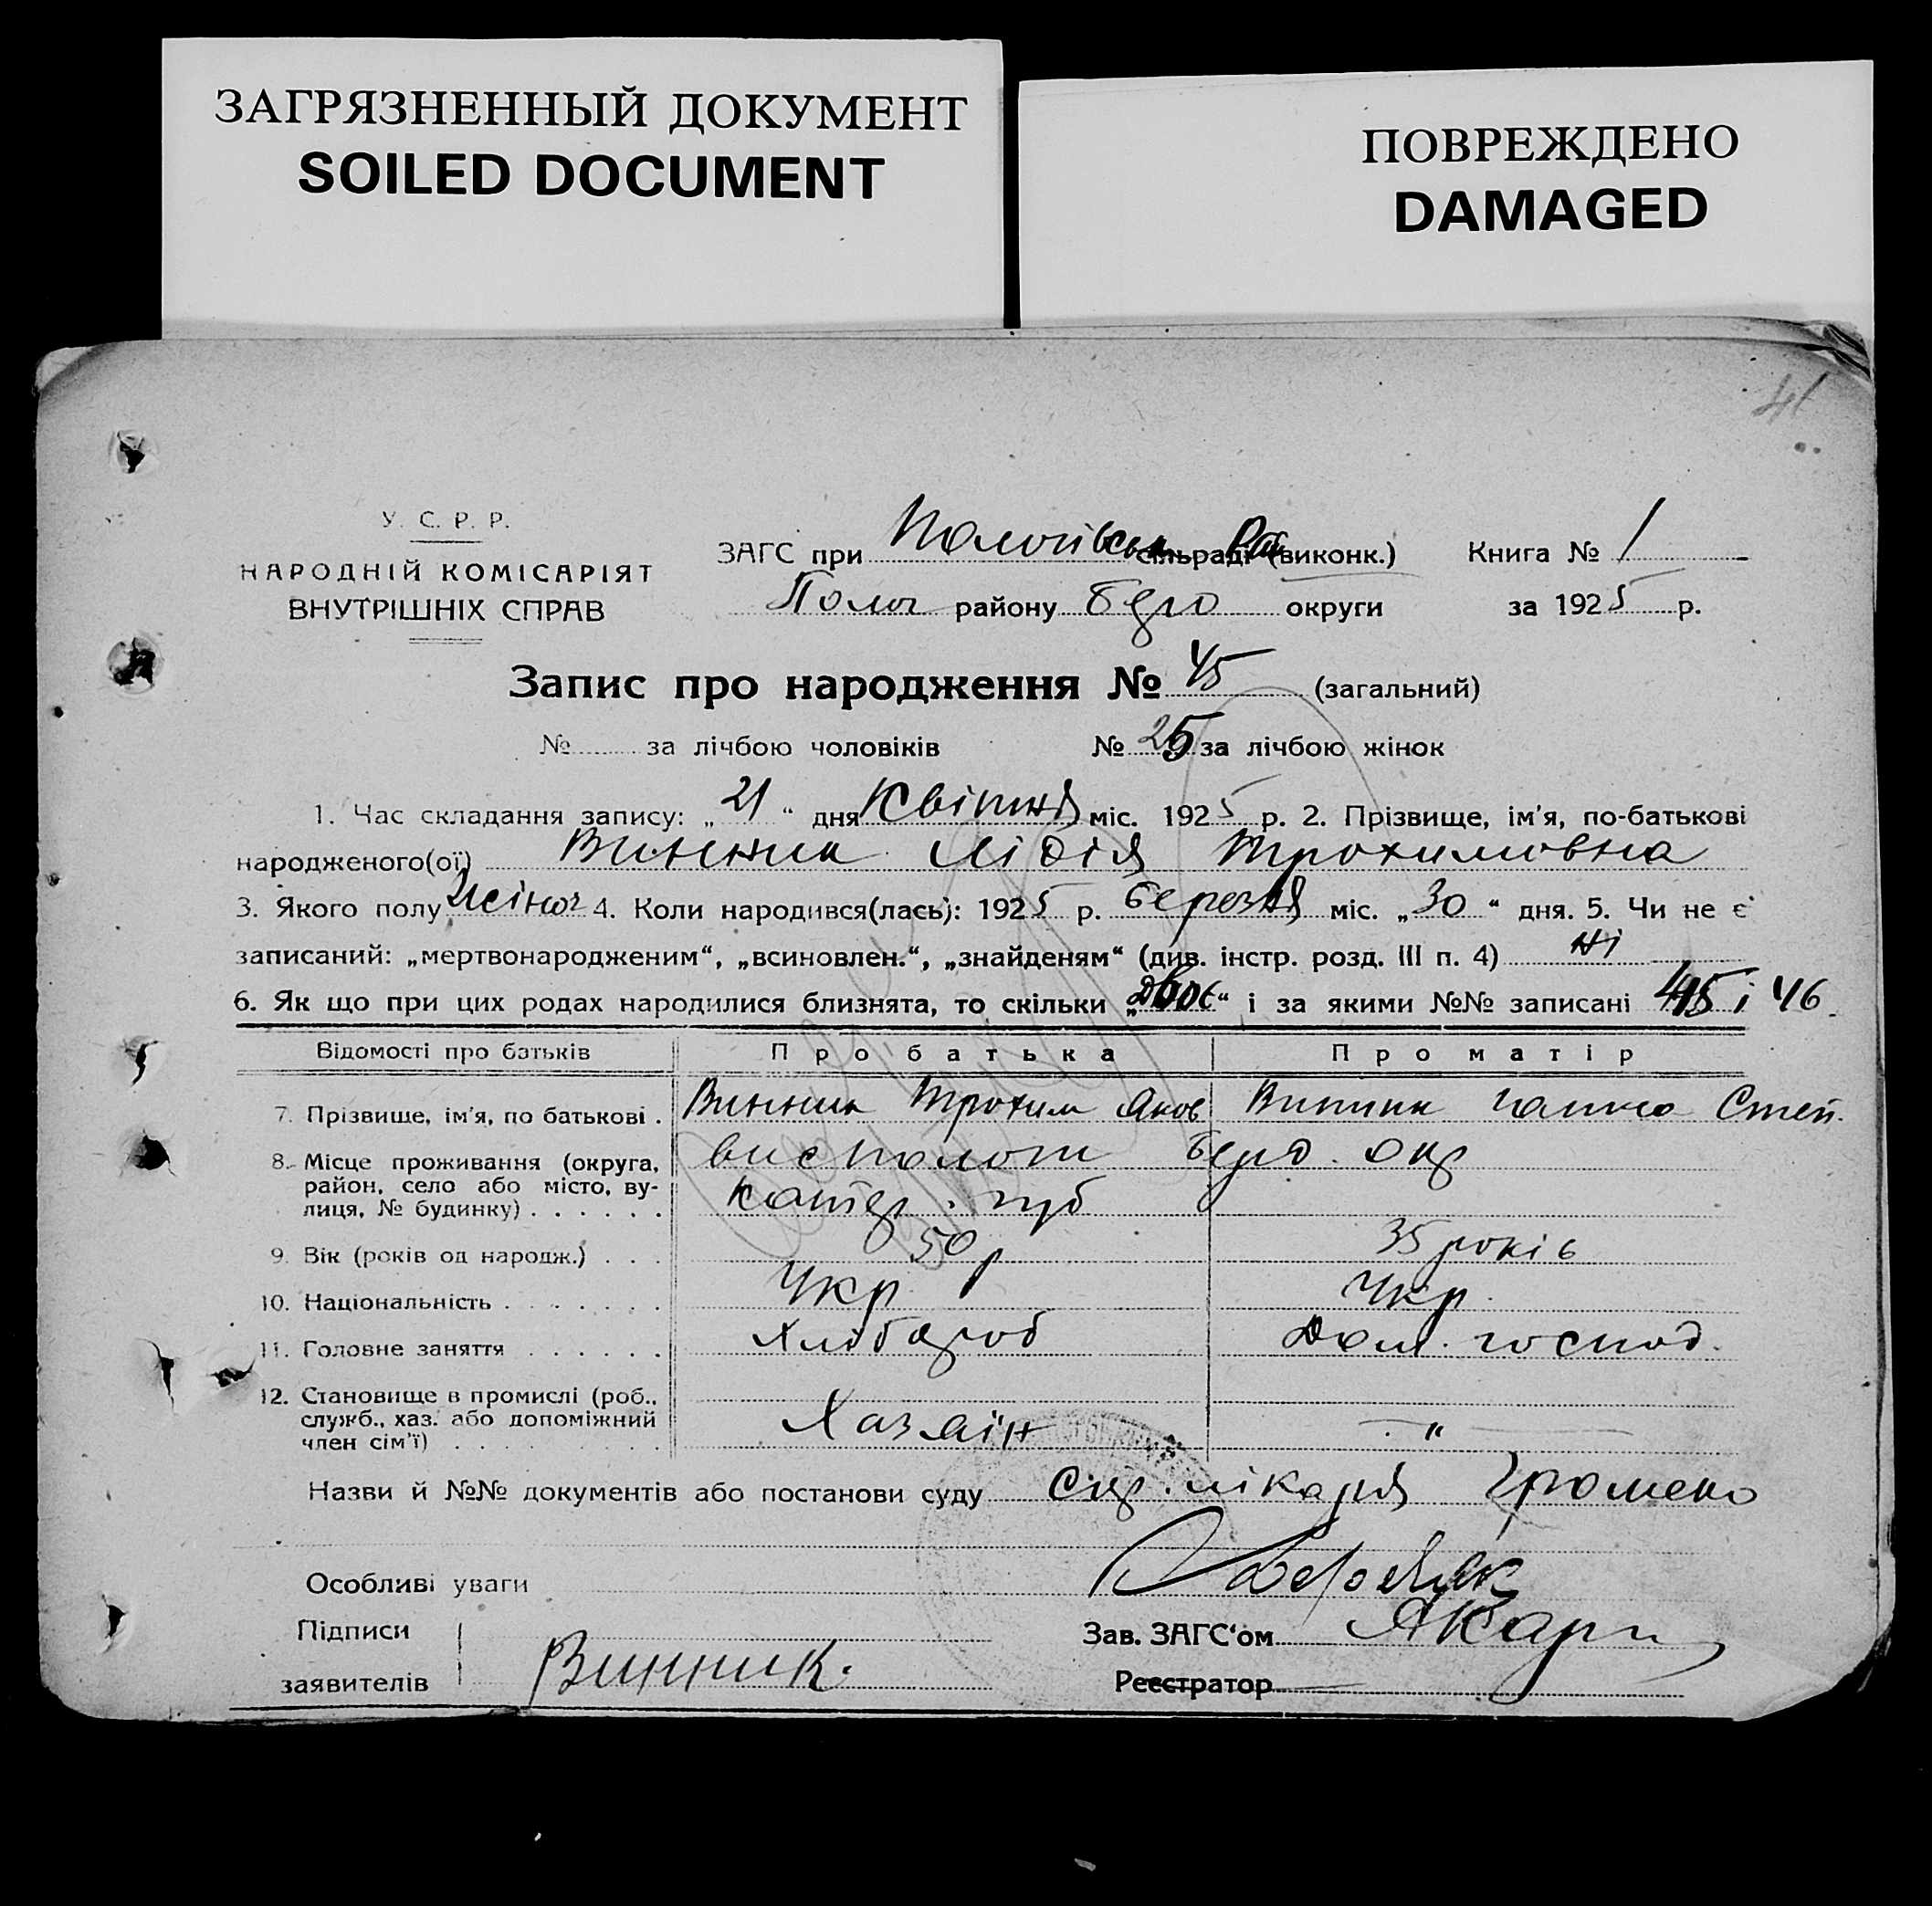 ЗАГРЯЗНЕННЫЙ ДОКУМЕНТ
SOILED DOCUMENT
ПОВРЕЖДЕНО
DAMAGED
41
У. С. Р. Р.
НАРОДНІЙ КОМІСАРІЯТ
ВНУТРІШНІХ СПРАВ
ЗАГС при Пологівськ сільраді (виконк.) Книга № 1
Полог району Бердо округи за 1925 р.
Запис про народження № 45 (загальний)
№ за лічбою чоловіків № 25 за лічбою жінок
1. Час складання запису: „21“ дня Квітня міс. 1925 р. 2. Прізвище, ім'я, по-батькові
народженого(ої) Винник Лідія Трохимовна
3. Якого полу жіноч 4. Коли народився(лась): 1925 р. березня міс. „30“ дня. 5. Чи не є
записаний: „мертвонародженим“, „всиновлен.“, „знайденям“ (див. інстр. розд. III п. 4) ні
6. Як що при цих родах народилися близнята, то скільки „двоє“ і за якими №№ записані 45 і 46.
Відомості про батьків Про батька Про матір
7. Прізвище, ім'я, по батькові . Винник Трохим Яков Винник Степ.
8. Місце проживання (округа, Берд. окр
район, село або місто, ву-
лиця, № будинку) . . . . . . Катер. губ
9. Вік (років од народж.) . . . 50 р 35 років
10. Національність . . . . . . . Укр. Укр.
11. Головне заняття . . . . . . Хлібороб Дом. господ.
12. Становище в промислі (роб.,
служб., хаз. або допоміжний
член сім'ї) . . . . . . . . . Хазяїн - " -
Назви й №№ документів або постанови суду лікаря
Особливі уваги
Підписи
заявителів Винник.
Зав. ЗАГС'ом
Реєстратор